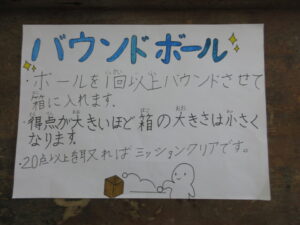 バウンドボール
・ボールを1回以上バウンドさせて
箱に入れます。
・得点が大きいほど箱の大きさは小さく
なります。
・20点以上を取ればミッションクリアです。